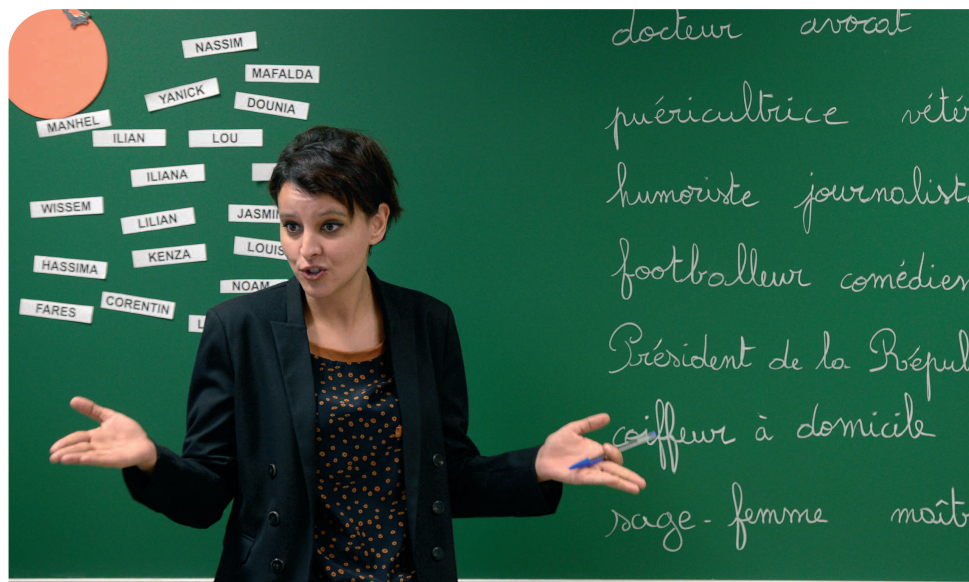 NASSIM
MAFALDA
YANICK
DOUNIA
MANHEL
ILIAN
LOU
ILIANA
WISSEM
LILIAN
JASMIN
KENZA
LOUIS
HASSIMA
NOAM
FARES
CORENTIN
docteur avocat
puéricultrice vétér
humoriste journalist
footballeur comédien
Président de la Républ
coiffeur à domicile
sage-femme maît